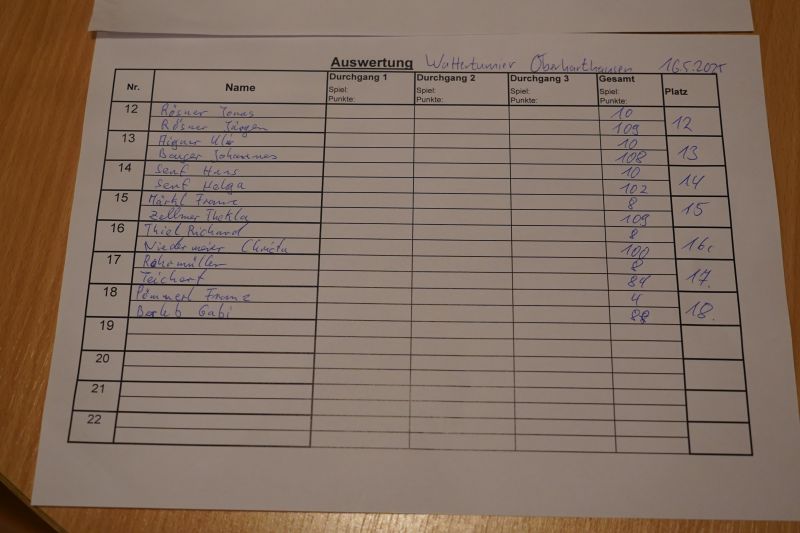 Auswertung Watterturnier Oberharthausen 16.5.2025
Nr. Name Durchgang 1 Spiel: Punkte: Durchgang 2 Spiel: Punkte: Durchgang 3 Spiel: Punkte: Gesamt Spiel: Punkte: Platz
12 Rösner Jonas 10 12
Rösner Jürgen 109
13 Aigner 10 13
Johannes 108
14 Senf Hans 10 14
Senf Helga 102
15 Märkl Franz 8 15
Zellmer Thekla 109
16 Thiel Richard 8 16.
Niedermeier Christa 100
17 Rohrmüller 8 17.
Teichert 84
18 Pömmerl Franz 4 18.
Gabi 88
19
20
21
22